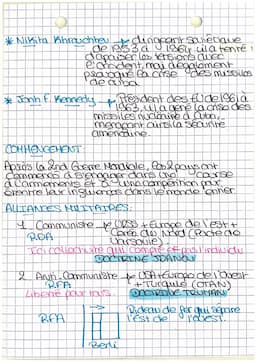 * Nikita Khrouchtev → dirigeant soviétique
de 1953 à 1964, il a tenté
d'apaiser les tensions avec
l'Occident, mai également
provoqué la crise des missiles
de cuba.
* Jonh F. Kennedy → Président des EU de 1961 à
1963, il a géré la crise des
missiles nucléaire à Cuba,
menaçant ainsi la sécurité
américaine.
COMMENCEMENT:
Après la 2nd Guerre Mondiale, les 2 pays ont
commencé à s'engager dans une course
d'armements et à une compétition pour
étendre leur influence dans le monde entier.
ALLIANCES MILITAIRES:
1. Communiste → URSS + Europe de l'est +
Corée du Nord (Pacte de
Varsovie).
RDA
Ici collectivité qui compte et pas l'individu
DOCTRINE JDANOV
2. Anti-Communiste → USA + Europe de l'Ouest
+ Turquie (OTAN)
RFA
Liberté pour tous
DOCTRINE TRUMAN
RFA
Rideau de fer qui sépare
l'est de l'ouest.
Berlin